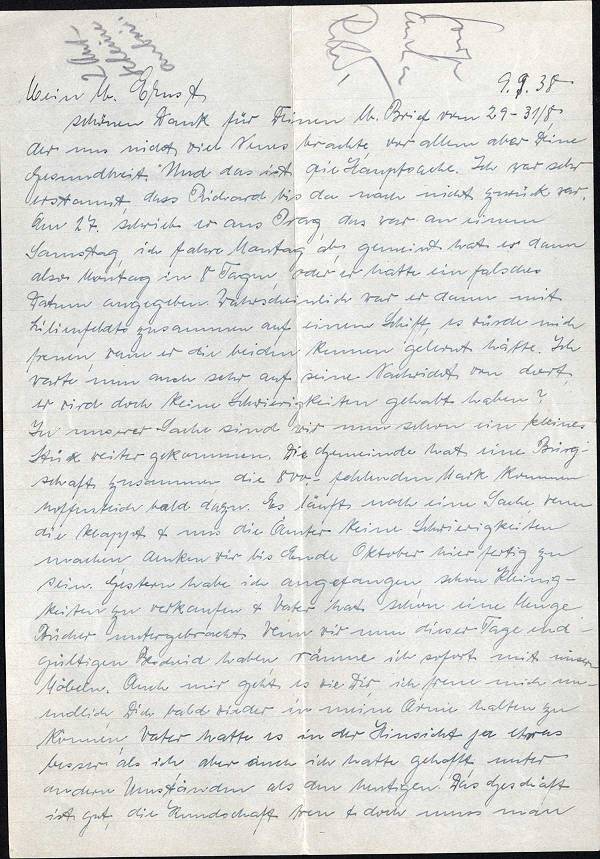 9.9.38
Mein lb. Ernst
schönen Dank für Deinen lb. Brief vom 29-31/8
der uns nicht viel Neues brachte, vor allem aber Deine
Gesundheit. Und das ist die Hauptsache. Ich war sehr
erstaunt, dass Richard bis da noch nicht zurück war.
Am 27. schrieb er aus Prag, das war an einem
Samstag, ich fahre Montag ab, gemeint hat er dann
also Montag in 8 Tagen, oder er hatte ein falsches
Datum angegeben. Wahrscheinlich war er dann mit
Lilienfeldts zusammen auf einem Schiff, es würde mich
freuen, wenn er die beiden kennen gelernt hätte. Ich
warte nun auch sehr auf seine Nachricht von dort
er wird doch keine Schwierigkeiten gehabt haben?
In unserer Sache sind wir nun schon ein kleines
Stück weiter gekommen. Die Gemeinde hat eine Bürg-
schaft zusammen die 800.- fehlenden Mark kommen
hoffentlich bald dazu. Es läuft noch eine Sache wenn
die klappt & uns die Ämter keine Schwierigkeiten
machen denken wir bis Ende Oktober hier fertig zu
sein. Gestern habe ich angefangen schon Kleinig-
keiten zu verkaufen & Vater hat schon eine Menge
Bücher untergebracht. Wenn wir nun dieser Tage end-
gültigen Bescheid haben räume ich sofort mit unsern
Möbeln. Auch mir geht es wie Dir, ich freue mich un-
endlich Dich bald wieder in meine Arme halten zu
können. Vater hatte es in der Hinsicht ja etwas
besser als ich aber auch ich hatte gehofft unter
andern Umständen als den heutigen. Das Geschäft
ist gut, die Kundschaft treu & doch muss man